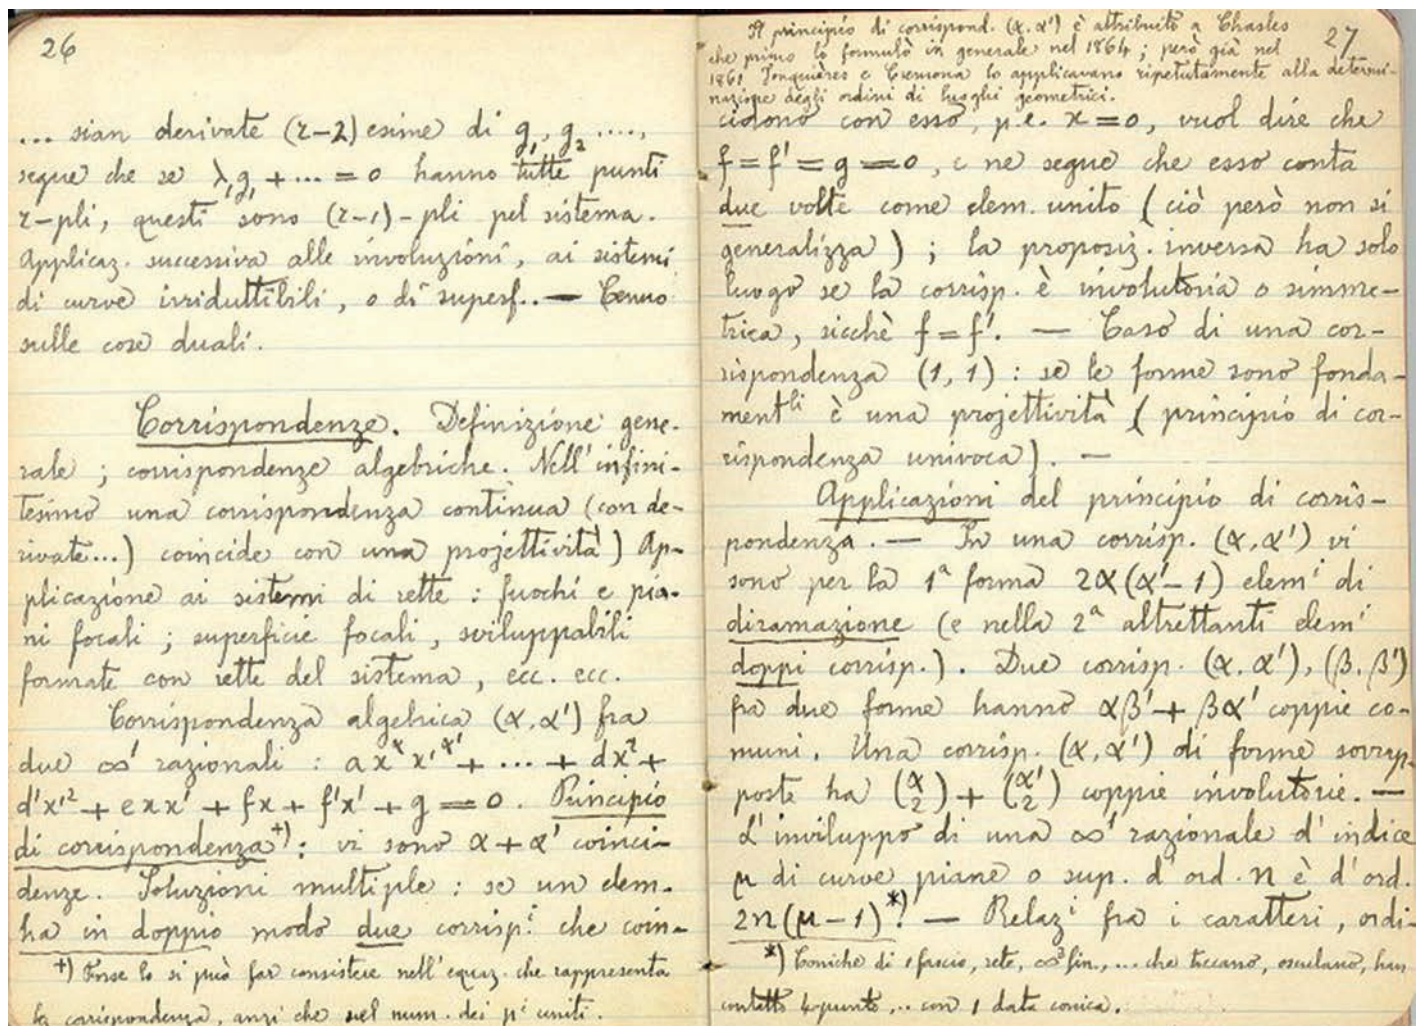 26
... sian derivate (r-2)esime di g₁, g₂ ....,
segue che se λ₁g₁ + ... = 0 hanno tutte punti
r-pli, questi sono (r-1)-pli pel sistema.
Applicaz. successiva alle involuzioni, ai sistemi
di curve irriduttibili, o di superf.. — Cenno
sulle cose duali.
Corrispondenze. Definizione gene-
rale; corrispondenze algebriche. Nell'infini-
tesimo una corrispondenza continua (con de-
rivate...) coincide con una projettività) Ap-
plicazione ai sistemi di rette: fuochi e pia-
ni focali; superficie focali, sviluppabili
formate con rette del sistema, ecc. ecc.
Corrispondenza algebrica (α, α') fra
due ∞¹ razionali: a x^α x'^α' + ... + dx² +
d'x'² + exx' + fx + f'x' + g = 0. Principio
di corrispondenza⁺⁾: vi sono α + α' coinci-
denze. Soluzioni multiple: se un elem.
ha in doppio modo due corrisp.ⁱ che coin-
+) Forse lo si può far consistere nell'equaz. che rappresenta
la corrispondenza, anzi che nel num. dei pⁱ uniti.
27
Il principio di corrispond. (α, α') è attribuito a Chasles
che primo lo formulò in generale nel 1864; però già nel
1861 Jonquières e Cremona lo applicavano ripetutamente alla determi-
nazione degli ordini di luoghi geometrici.
cidono con esso, p.e. x = 0, vuol dire che
f = f' = g = 0, e ne segue che esso conta
due volte come elem. unito (ciò però non si
generalizza); la proposiz. inversa ha solo
luogo se la corrisp. è involutoria o simme-
trica, sicchè f = f'. — Caso di una cor-
rispondenza (1, 1): se le forme sono fonda-
mentˡⁱ è una projettività (principio di cor-
rispondenza univoca). —
Applicazioni del principio di corris-
pondenza. — In una corrisp. (α, α') vi
sono per la 1ª forma 2α(α'-1) elemⁱ di
diramazione (e nella 2ª altrettanti elemⁱ
doppi corrisp.). Due corrisp. (α, α'), (β, β')
fra due forme hanno αβ' + βα' coppie co-
muni. Una corrisp. (α, α') di forme sovrap-
poste ha (α 2) + (α' 2) coppie involutorie. —
L'inviluppo di una ∞¹ razionale d'indice
μ di curve piane o sup. d'ord. n è d'ord.
2n(μ-1)*)! — Relazⁱ fra i caratteri, ordi-
*) Coniche di 1 fascio, rete, ∞³ lin., ... che toccano, osculano, han
contatto 4-punto,.. con 1 data conica.